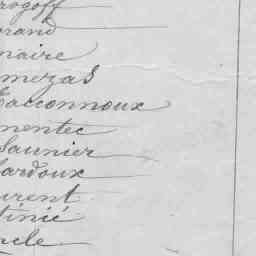 rogoff
orand
naire
mezas
Cacconnoux
mentec
Saunier
Lardoux
urent
tinié
ucle